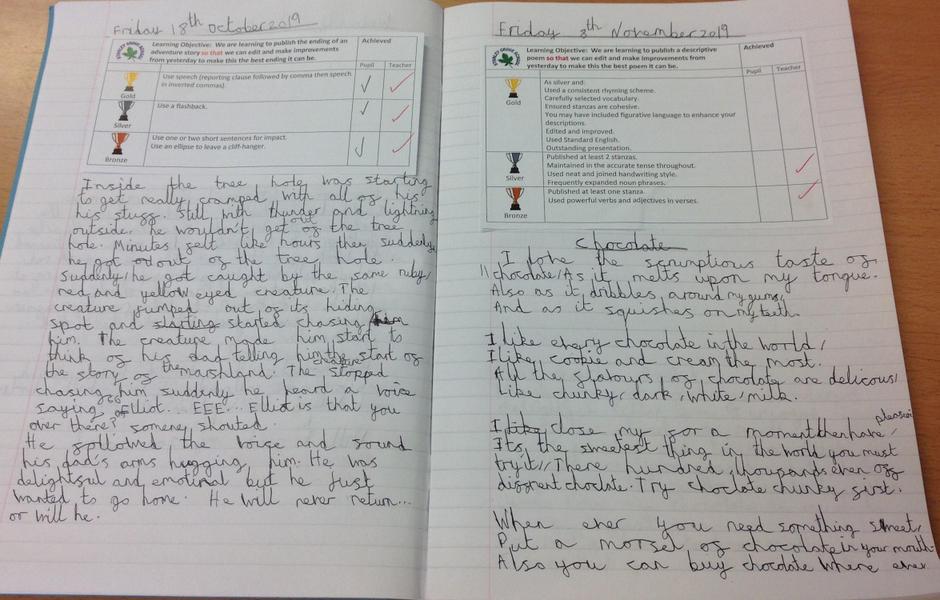 Friday 18th October 2019
Learning Objective: We are learning to publish the ending of an
adventure story so that we can edit and make improvements
from yesterday to make this the best ending it can be.
Achieved
Pupil
Teacher
Gold
Use speech (reporting clause followed by comma then speech
in inverted commas).
Silver
Use a flashback.
Bronze
Use one or two short sentences for impact.
Use an ellipse to leave a cliff-hanger.
Inside the tree hole was starting
to get really cramped with all of his
his stuff. Still with thunder and lightning
outside, he wouldn't get out of the tree
hole. Minutes felt like hours then suddenly,
he got out of the tree hole.
Suddenly he got caught by the same ruby
red and yellow eyed creature. The
creature jumped out of its hiding
spot and starting started chasing him
him. The creature made him start to
think of his dad telling him the start of
the story of the marshland. The stopped
chasing him suddenly he heard a voice
saying Elliot... EEE... Elliot is that you
over there? someney shouted.
He followed the voice and sound
his dad's arms hugging him. He was
delightful and emotinal but he just
wanted to go home. He will never return...
or will he.
Friday 8th November 2019
Learning Objective: We are learning to publish a descriptive
poem so that we can edit and make improvements from
yesterday to make this the best poem it can be.
Achieved
Pupil
Teacher
Gold
As silver and:
Used a consistent rhyming scheme.
Carefully selected vocabulary.
Ensured stanzas are cohesive.
You may have included figurative language to enhance your
descriptions.
Edited and improved.
Used Standard English.
Outstanding presentation.
Silver
Published at least 2 stanzas.
Maintained in the accurate tense throughout.
Used neat and joined handwriting style.
Frequently expanded noun phrases.
Bronze
Published at least one stanza.
Used powerful verbs and adjectives in verses.
Chocolate
I love the scrumptious taste of
chocolate/As it melts upon my tongue.
Also as it dribbles around my gums,
And as it squishes on my teeth.
I like every chocolate in the world,
I like cookie and cream the most.
All the flavours of chocolate are delicous,
Like chunky, dark, white, milk.
I like close my for a moment then have, please
Its the sweetest thing in the world you must
try it// There hundred, thousands even off
diffrent choclate. Try choclate chunky first.
When ever you need something sweet,
Put a morsel of chocolate in your mouth
Also you can buy chocolate where ever